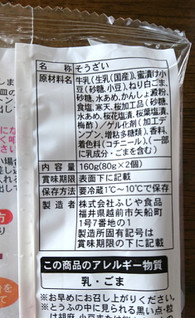 名称 そうざい
原材料名 牛乳(生乳(国産))、蜜漬け小
豆(砂糖、小豆)、ねり白ごま、
砂糖、水あめ、かんしょ澱粉、
食塩、寒天、桜加工品(砂糖、
水あめ、桜花塩漬、桜葉塩漬、
梅酢)/ゲル化剤(加工デ
ンプン、増粘多糖類)、香料、
着色料(コチニール)、(一部
に乳成分・ごまを含む)
内容量 160g(80g×2個)
賞味期限 表面下に記載
保存方法 要冷蔵1℃~10℃で保存
製造者 株式会社ふじや食品
福井県越前市矢船町
1号7番地の1
製造所固有記号は
賞味期限の下に記載
この商品のアレルギー物質
乳・ごま
※お早めにお召し上がりください。
※中に見られる黒い点・粒